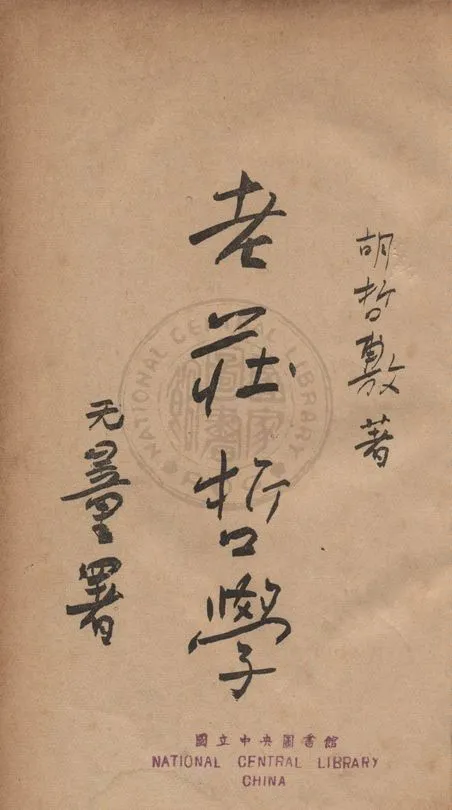 胡哲敷著
老莊哲學
无量署
國立中央圖書館
NATIONAL CENTRAL LIBRARY
CHINA
NATIONAL CENTRAL LIBRARY